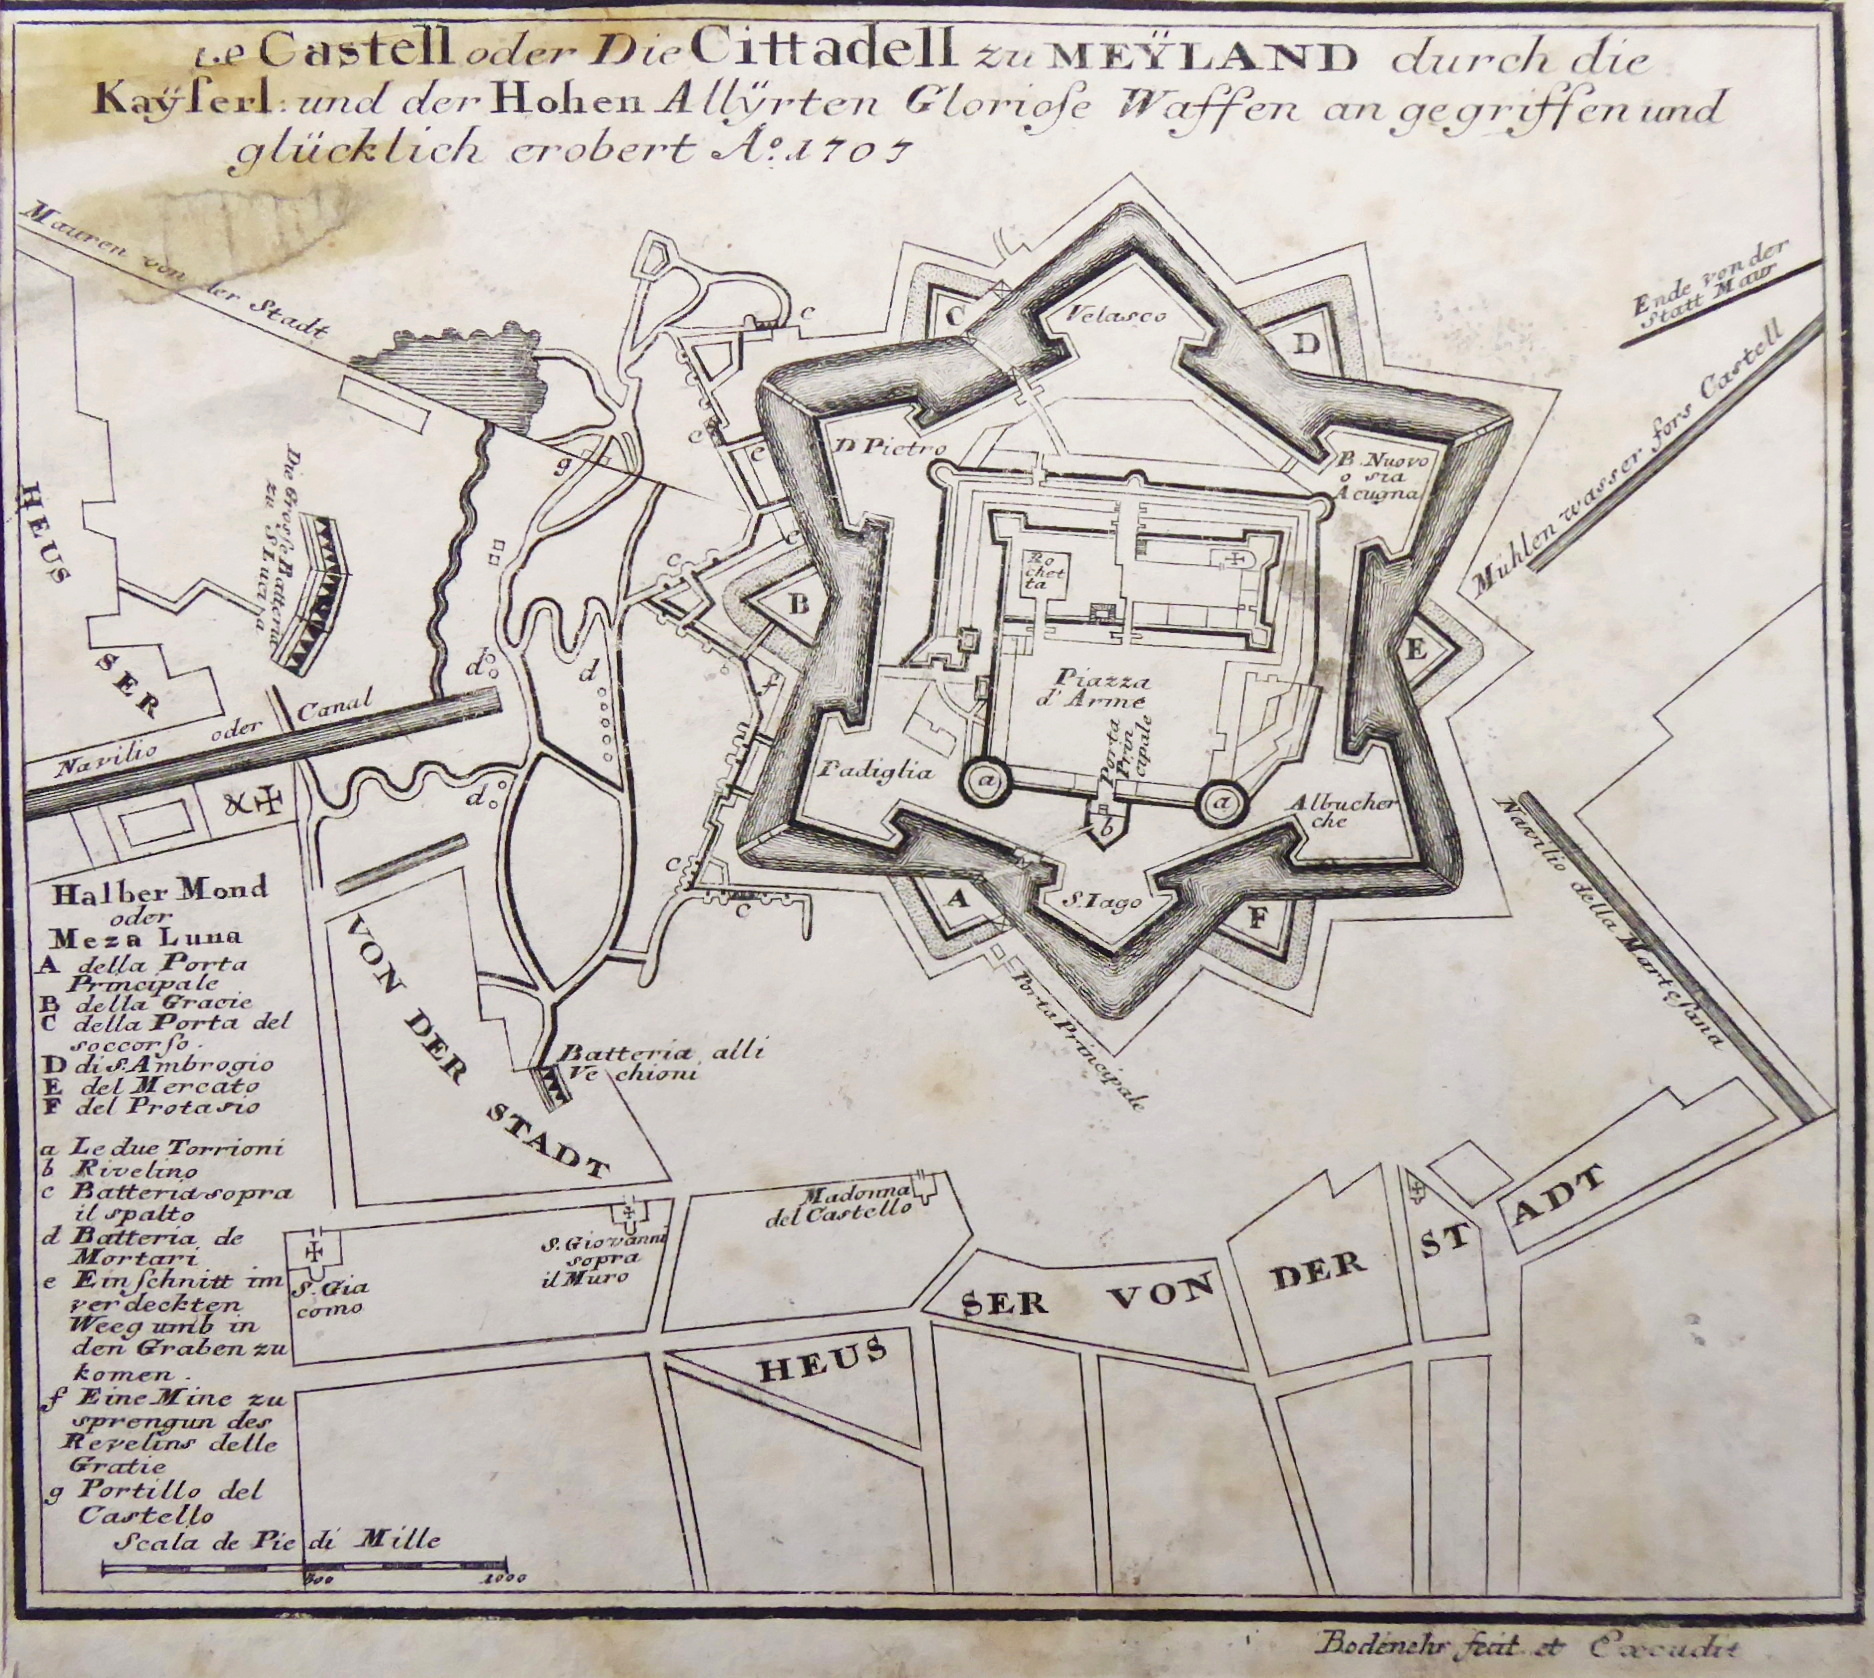 Le Castell oder Die Cittadell zu MEŸLAND durch die
Kaÿſerl: und der Hohen Allÿrten Glorioſe Waffen angegriffen und
glücklich erobert Aº. 1707
Mauren von der Stadt
Ende von der
Statt Maur
Mühlen wasser fors Castell
Velasco
D Pietro
B. Nuovo
o sia
Acugna
C
D
B
E
A
F
Ro
chet
ta
Piazza
d'Arme
Porta
Prin
cipale
Padiglia
Albucher
che
S. Iago
a
a
b
c
c
e
e
c
f
c
c
g
d
d
d
HEUS
SER
Die Groſſe Batteria
zu S Lucia
Navilio oder Canal
VON DER STADT
Batteria alli
Vechioni
Porta Principale
Navilio della Marteſana
Halber Mond
oder
Meza Luna
A della Porta
Principale
B della Gracie
C della Porta del
soccorſo.
D di S. Ambrogio
E del Mercato
F del Protasio
a Le due Torrioni
b Rivelino
c Batteria sopra
il spalto
d Batteria de
Mortari
e Einſchnitt im
verdeckten
Weeg umb in
den Graben zu
komen.
f Eine Mine zu
sprengun des
Revelins delle
Gratie
g Portillo del
Castello
Scala de Pie di Mille
500 1000
S. Gia
como
S. Giovanni
sopra
il Muro
Madonna
del Castello
HEUS
SER VON DER STADT
Bodenehr fecit et Excudit